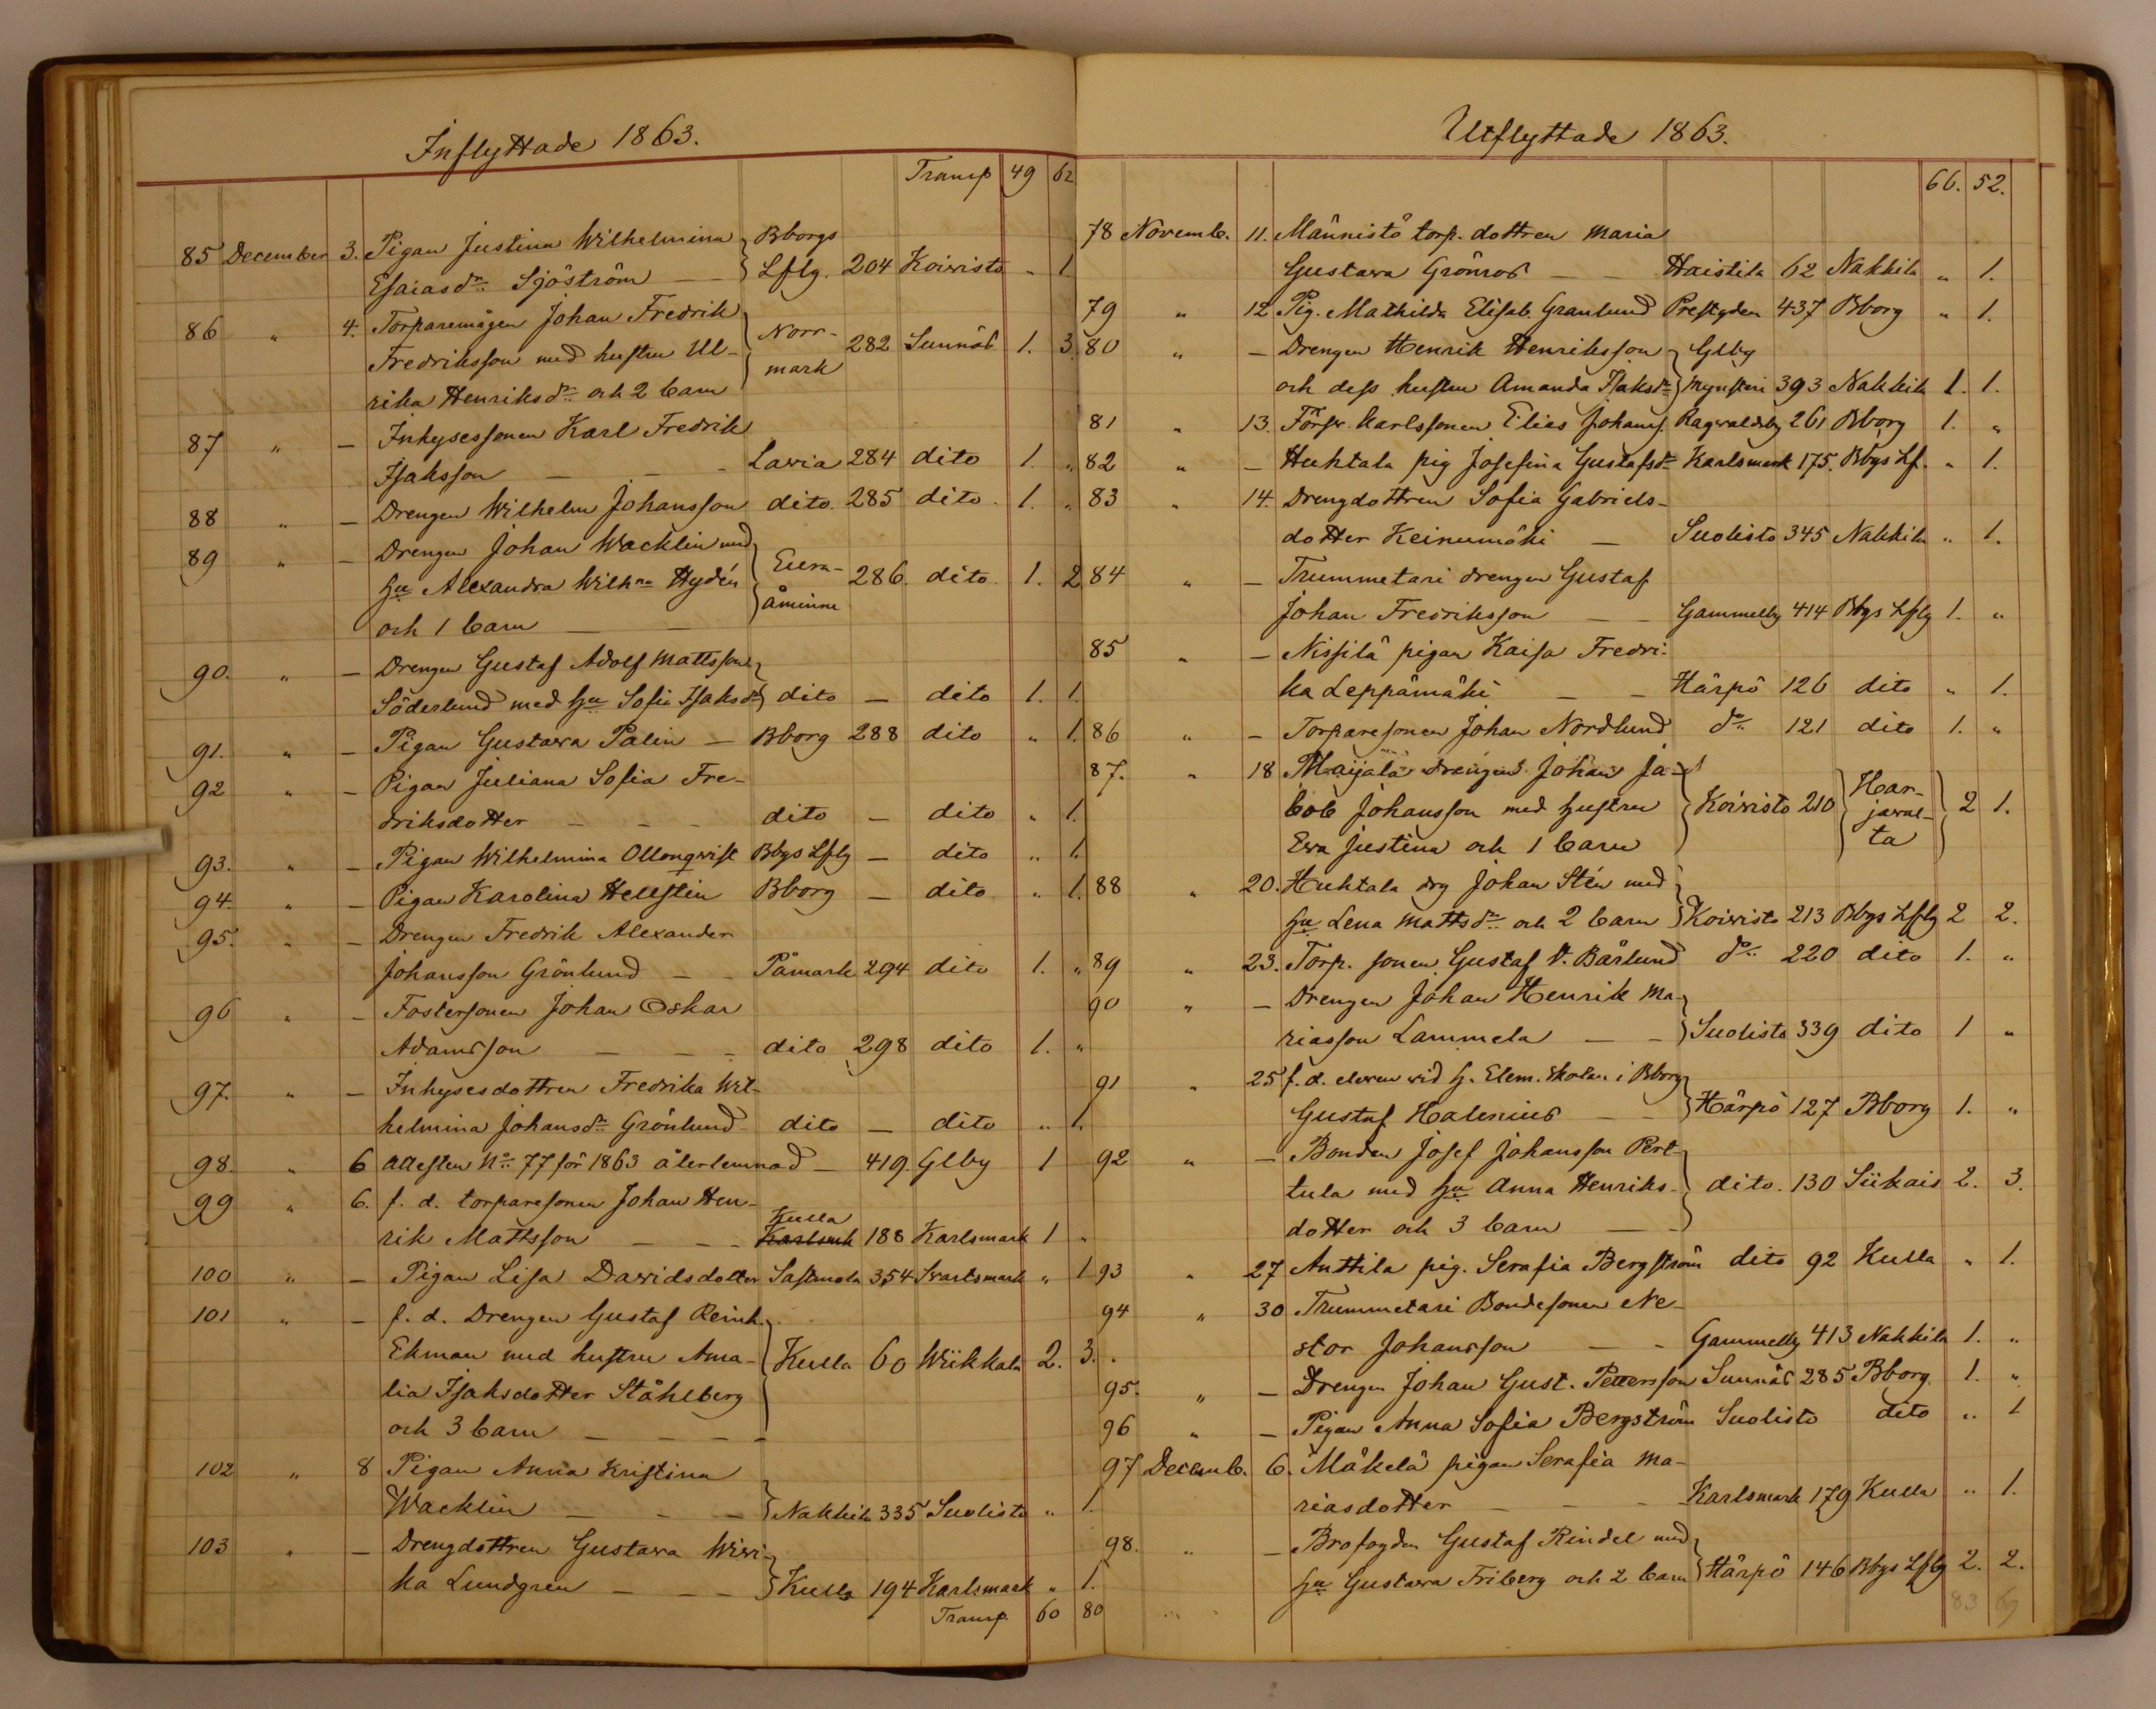 Inflyttade 1863.
Transp 49 62
85 December 3. Pigan Justina Wilhelmina } Bborgs
Esaiasdr. Sjöström — Lflg. 204 Koivisto " 1
86 " 4. Torparemågen Johan Fredrik
Fredriksson med hustru Ul- } Norr- 282 Sunnäs 1. 3
rika Henriksdr. och 2 barn mark
87 " — Inhysessonen Karl Fredrik
Isaksson — — — Lavia 284 dito 1. "
88 " — Drengen Wilhelm Johansson dito. 285 dito. 1. "
89 " — Drengen Johan Wacklin med
hu Alexandra Wilhna Hydén } Eura- 286. dito. 1. 2
och 1 barn — — åminne
90. " — Drengen Gustaf Adolf Mattsson
Söderlund med hu Sofia Isaksdr } dito — dito 1. 1.
91. " — Pigan Gustava Palin — Bborg 288 dito " 1.
92 " — Pigan Juliana Sofia Fre-
driksdotter — — — dito — dito " 1.
93. " — Pigan Wilhelmina Ollonqvist Bbgs Lflg — dito " 1.
94. " — Pigan Karolina Hellstin Bborg — dito " 1.
95. " — Drengen Fredrik Alexander
Johansson Grönlund — — Påmark 294 dito 1. "
96 " — Fostersonen Johan Oskar
Adamsson — — — dito 298 dito 1. "
97. " — Inhysesdottren Fredrika Wil-
helmina Johansdr. Grönlund dito — dito " 1.
98. " 6 Attesten No. 77 för 1863 återlemnad — 419. Glby 1
99 " 6. f. d. torparesonen Johan Hen-
Kulla
rik Mattsson — — — Karlsmk 188 Karlsmark 1 "
100 " — Pigan Lisa Davidsdotter Sastmola 354 Svartsmark " 1
101 " — f. d. Drengen Gustaf Reinh.
Ekman med hustru Ama- } Kulla 60 Wiikkala 2. 3.
lia Isaksdotter Ståhlberg
och 3 barn — — — —
102 " 8 Pigan Anna Kristina
Wacklin — — — } Nakkila 335 Suolisto " 1.
103 " — Drengdottren Gustava Wivi-
ka Lundgren — — — } Kulla 194 Karlsmark " 1.
Transp. 60 80
Utflyttade 1863.
66. 52.
78 Novemb. 11. Männistö torp. dottren Maria
Gustava Grönros — — Haistila 62 Nakkila " 1.
79 " 12 Pig. Mathilda Elisab. Granlund Prestgden 437 Bborg " 1.
80 " — Drengen Henrik Henriksson } Glby
och dess hustru Amanda Isaksdr } Mynsteri 393 Nakkila 1. 1.
81 " 13. Försv. karlssonen Elias Johans. Ragvaldsby 261 Bborg 1. "
82 " — Huhtala pig Josefina Gustafsdr Karlsmark 175. Bbgs Lf. " 1.
83 " 14. Drengdottren Sofia Gabriels-
dotter Keinumäki — Suolisto 345 Nakkila " 1.
84 " — Trummetari drengen Gustaf
Johan Fredriksson — — Gammelby 414 Bbgs Lflg 1. "
85 " — Nissilä pigan Kaisa Fredri-
ka Leppämäki — — Härpö 126 dito " 1.
86 " — Torparesonen Johan Nordlund do. 121 dito 1. "
87. " 18 Maijala drengen Johan Ja-
cob Johansson med hustru } Koivisto 210 } Har- javal- ta } 2 1.
Eva Justina och 1 barn
88 " 20. Huhtala drg Johan Stén med
hu Lena Mattsdr. och 2 barn } Koivisto 213 Bbgs Lflg 2 2.
89 " 23. Torp. sonen Gustaf V. Bärlund do. 220 dito 1. "
90 " — Drengen Johan Henrik Ma-
riasson Lammela — — } Suolisto 339 dito 1 "
91 " 25 f. d. eleven vid h. Elem. Skolan i Bborg
Gustaf Halenius — — } Härpö 127 Bborg 1. "
92 " — Bonden Josef Johansson Pert-
tula med hu Anna Henriks- } dito. 130 Siikais 2. 3.
dotter och 3 barn — —
93 " 27 Anttila pig. Serafia Bergström dito 92 Kulla " 1.
94 " 30 Trummetari Bondesonen Ne-
stor Johansson — — Gammelby 413 Nakkila 1. "
95. " — Drengen Johan Gust. Pettersson Sunnäs 285 Bborg 1. "
96 " — Pigan Anna Sofia Bergström Suolisto dito " 1
97 Decemb. 6. Mäkelä pigan Serafia Ma-
riasdotter — — — Karlsmark 179 Kulla " 1.
98. " — Brofogden Gustaf Rindel med
hu Gustava Friberg och 2 barn } Härpö 146 Bbgs Lflg 2. 2.
83 69